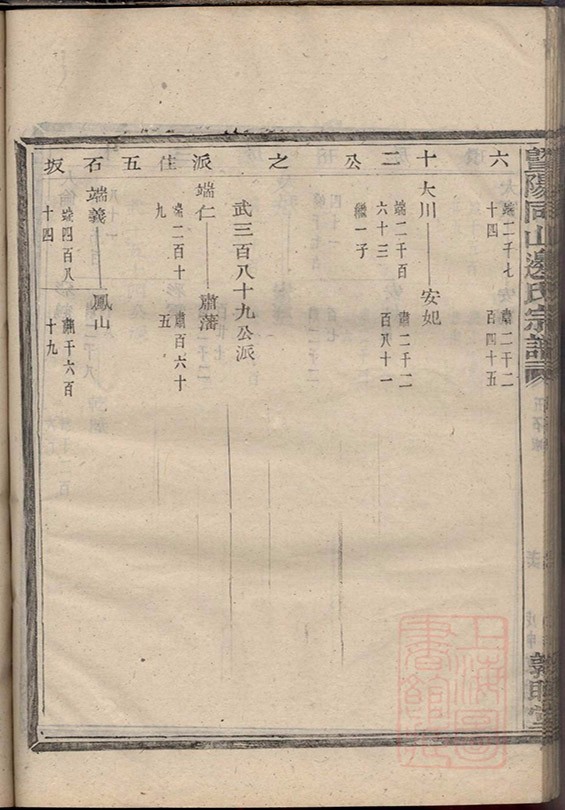 暨陽同山邊氏宗譜
敦睦堂
六十二公之派住五石坂
端二千七十四
肅二千二百四十五
大川 安妃
端二千百六十三
肅二千二百八十一
繼一子
武三百八十九公派
端仁 肅藩
端二百十九
肅百六十五
端義 鳳山
端四百八十四
肅千六百十九
上海圖書館藏